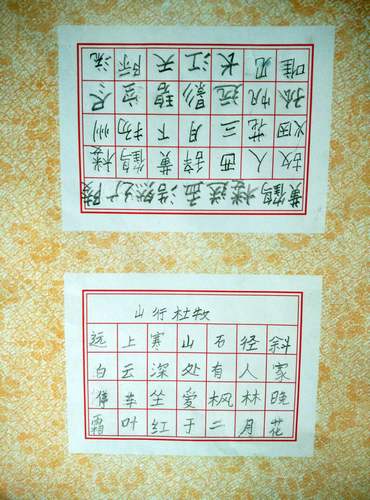 黄鹤楼送孟浩然之广陵
故人西辞黄鹤楼
烟花三月下扬州
孤帆远影碧空尽
唯见长江天际流
山行杜牧
远上寒山石径斜
白云深处有人家
坐爱枫林晚
霜叶红于二月花